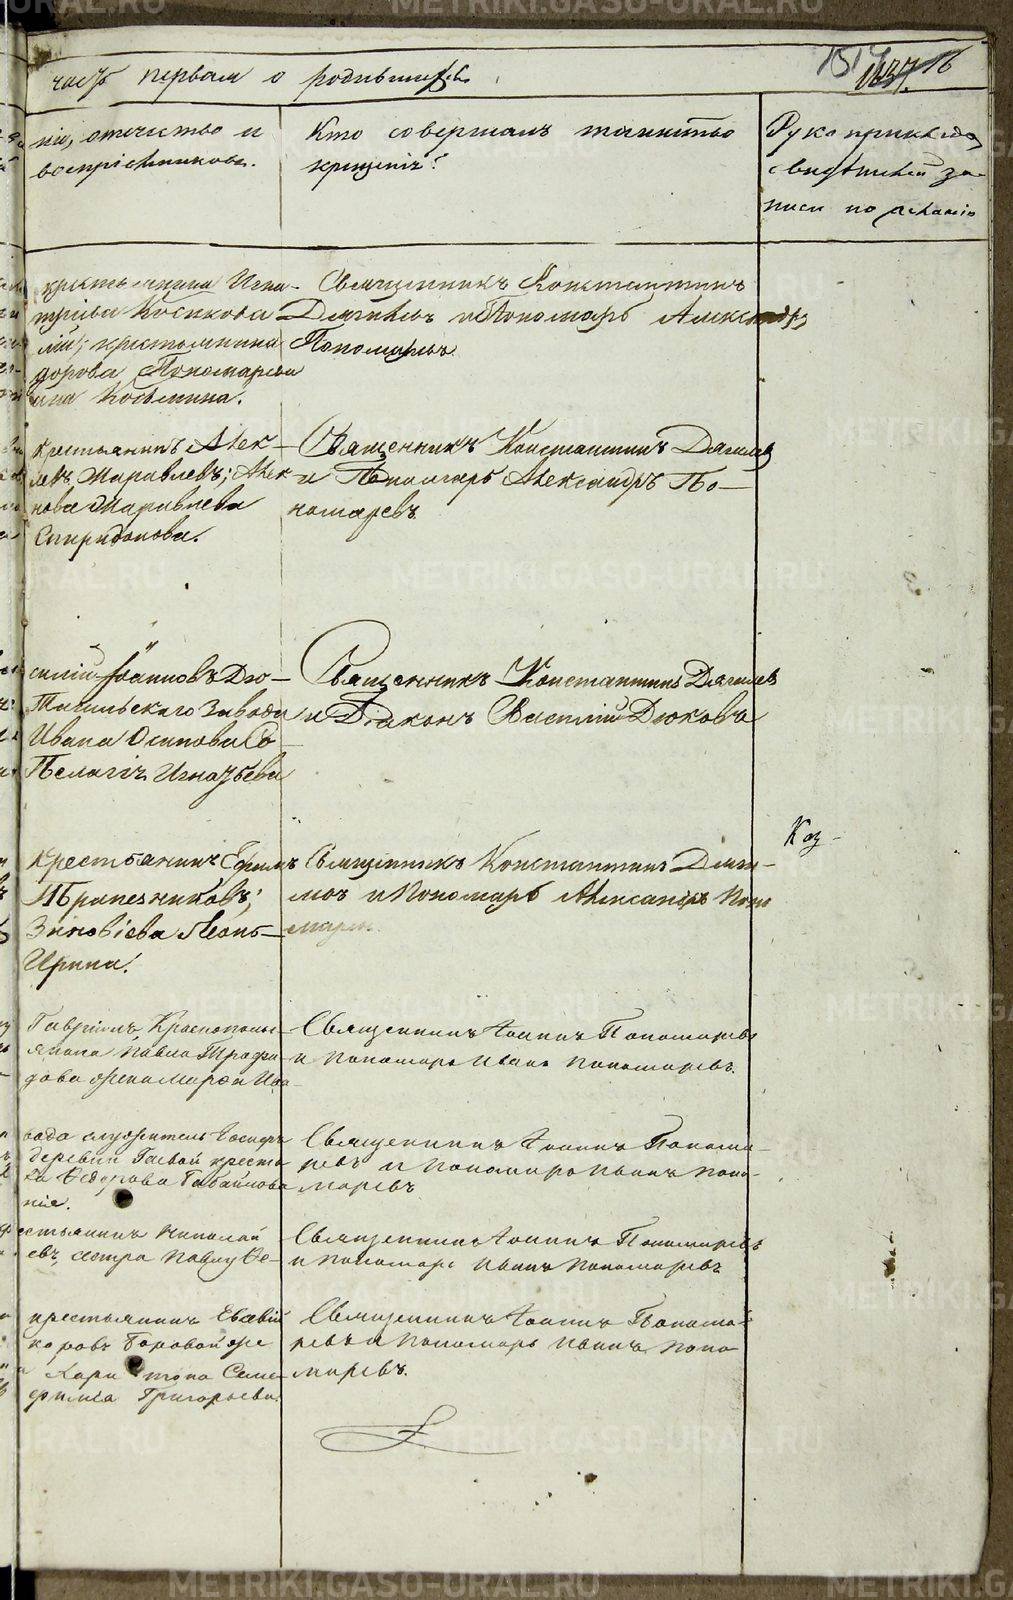 часть первая о родившихся.
16
нiе, отчество и
воспрiемниковъ.
Кто совершалъ таинство
крещенiя?
Рукоприкладство
свидѣтелей за-
писи по желанiю
крестьянина Игна-
трiева Косикова
крестьянина
дорова Пономарева
Косьмина.
Священникъ Константинъ
Дягилевъ и Пономарь Александръ
Пономаревъ
Крестьянинъ Алек-
Журавлевъ; Алек
нова Журавлева
Спиридонова.
Священникъ Константинъ Дягилев
и Пономарь Александръ По-
номаревъ
силiй Iоанновъ Дю-
Тагильскаго Завода
Ивана Осипова Со-
Пелагiя Игнатьева
Священникъ Константинъ Дягилев
и Дiаконъ Василiй Дюковъ
Крестьянинъ Ефимъ
Трапезниковъ;
Зиновiева Леонь-
Ирина.
Священникъ Константинъ Дяги-
левъ и Пономарь Александръ Поно
марев
Гаврiилъ Краснополь-
янина Павла Трофи-
дова жена Марфа Ива-
Священникъ Iоаннъ Пономаревъ
и пономарь Иванъ Пономаревъ.
вода служитель Iосифъ
деревни Гаевой кресть
ка Ѳедорова Габайлова
нiя.
Священникъ Iоаннъ Понома-
ревъ и пономарь Иванъ Поно-
маревъ
естьянинъ Николай
евъ, сестра Павлу Ѳе-
Священникъ Iоаннъ Пономаревъ
и пономарь Иванъ Пономаревъ
крестьянинъ Евсевiй
коровъ Боровой же
Харитона Семе-
фимiа Григорьева.
Священникъ Iоаннъ Понома-
ревъ и пономарь Иванъ Поно
маревъ.
METRIKI.GASO-URAL.RU